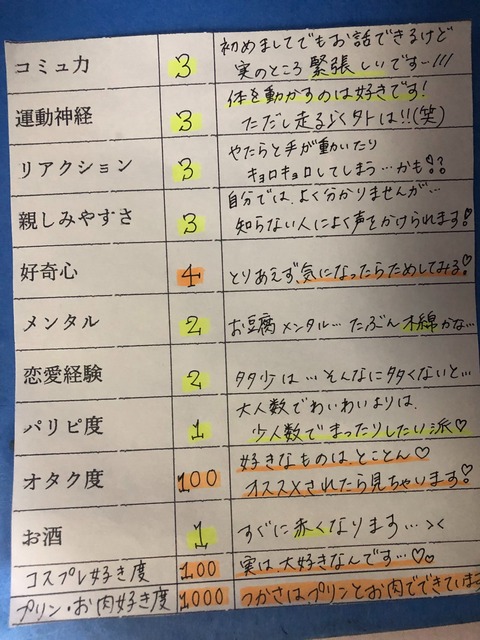 コミュ力 3 初めましてでもお話できるけど
実のところ緊張しいです…!!!
運動神経 3 体を動かすのは好きです!
ただし走る以外は!!(笑)
リアクション 3 やたらと手が動いたり
キョロキョロしてしまう…かも!?
親しみやすさ 3 自分では、よく分かりませんが…
知らない人によく声をかけられます!
好奇心 4 とりあえず、気になったらためしてみる!
メンタル 2 お豆腐メンタル…たぶん木綿かな…
恋愛経験 2 多少は…そんなに多くないと…
パリピ度 1 大人数でわいわいよりは、
少人数でまったりしたい派♡
オタク度 100 好きなものは、とことん♡
オススメされたら見ちゃいます!
お酒 1 すぐに赤くなります…><
コスプレ好き度 100 実は、大好きなんです…♡♡
プリン・お肉好き度 1000 つかさはプリンとお肉でできています